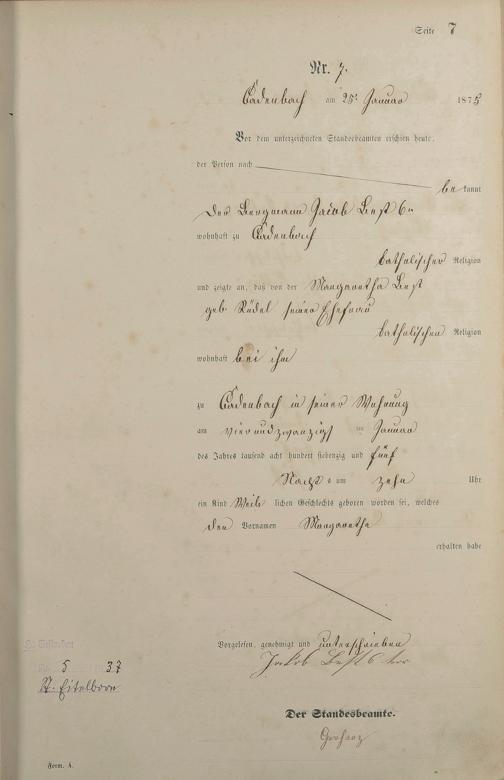 Seite 7
Nr. 7.
Cadenbach am 25t Januar 1875
Vor dem unterzeichneten Standesbeamten erschien heute,
der Person nach
be kannt
der Bergmann Jacob Best 6r
wohnhaft zu Cadenbach
katholischer Religion
und zeigte an, daß von der Margaretha Best
geb Rüdel seiner Ehefrau
katholischen Religion
wohnhaft bei ihm
zu Cadenbach in seiner Wohnung
am vierundzwanzigst en Januar
des Jahres tausend acht hundert siebenzig und fünf
Nachts um zehn Uhr
ein Kind Weib lichen Geschlechts geboren worden sei, welches
den Vornamen Margaretha
erhalten habe
Vorgelesen, genehmigt und unterschrieben
Jakob Best 6 ter
Gestorben
5 37
St. Eitelborn
Der Standesbeamte.
Gerharz
Form. A.